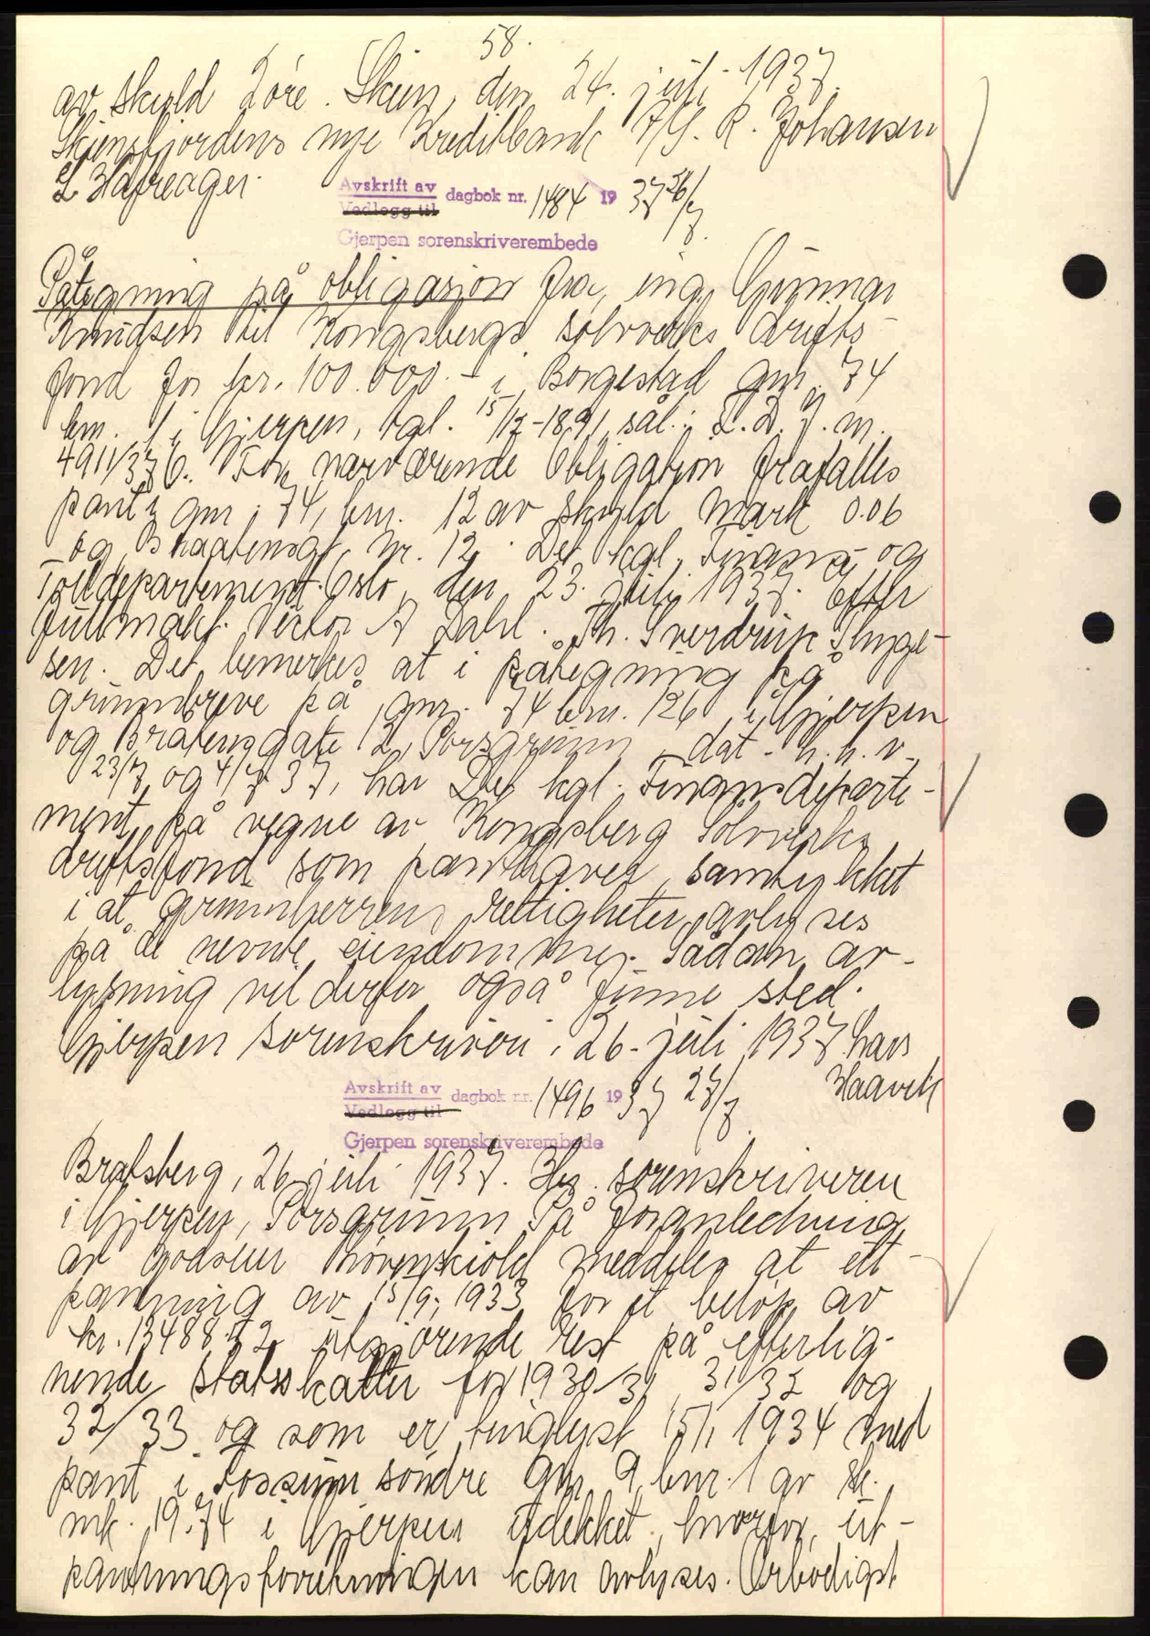 58.
av skyld 2 øre. Skien, den 24. juli 1937.
Skiensfjordens nye Kreditbank A/S. R. Johansen
Avskrift av
Vedlegg til dagbok nr. 1484 1937 26/7
Gjerpen sorenskriverembede
Påtegning på obligasjon fra ing. Gunnar
Knudsen til Kongsbergs sølvverks drifts-
fond for kr. 100.000.- i Borgestad gnr. 74
bnr. 1 i Gjerpen, tgl. 15/12-1891, sål.: L.D.J.m.
4911/37 . For nærværende obligation frafalles
pant i gnr. 74, bnr. 12 av skyld mark 0.06
og Braatensgt. Nr. 12. Det kgl. Finans- og
Tolldepartement. Oslo, den 23. juli 1937. Efter
fullmakt. Victor A Dahl. Th. Sverdrup Thyge-
sen. Det bemerkes at i påtegning på
grunnbreve på gnr. 74 bnr. 126 i Gjerpen
og Bratensgate 12, Porsgrunn, dat. h.h.v.
23/7 og 4/7 37, har Det kgl. Finansdeparte-
ment på vegne av Kongsberg Sølvverks
driftsfond som panthaver, samtykket
i at grunnherrens rettigheter avlyses
på de nevnte eiendommer. Sådan av-
lysning vil derfor også finne sted.
Gjerpen sorenskriveri, 26. juli 1937. Lars
Haavik
Avskrift av
Vedlegg til dagbok nr. 1496 1937 27/7
Gjerpen sorenskriverembede
Bratsberg, 26 juli 1937. Hr. sorenskriveren
i Gjerpen, Porsgrunn. På foranledning
av godseier Løvenskiold meddeles at ut-
panning av 15/9. 1933 for et beløp av
kr. 13488.72 utgjørende rest på efterlig-
nende statsskatter for 1930/31, 31/32 og
32/33 og som er tinglyst 15/1 1934 med
pant i Fossum søndre gnr. 9 bnr. 1 av sk.
mk. 19.74 i Gjerpen er dekket, hvorfor ut-
panningsforretningen kan avlyses. Ærbødigst